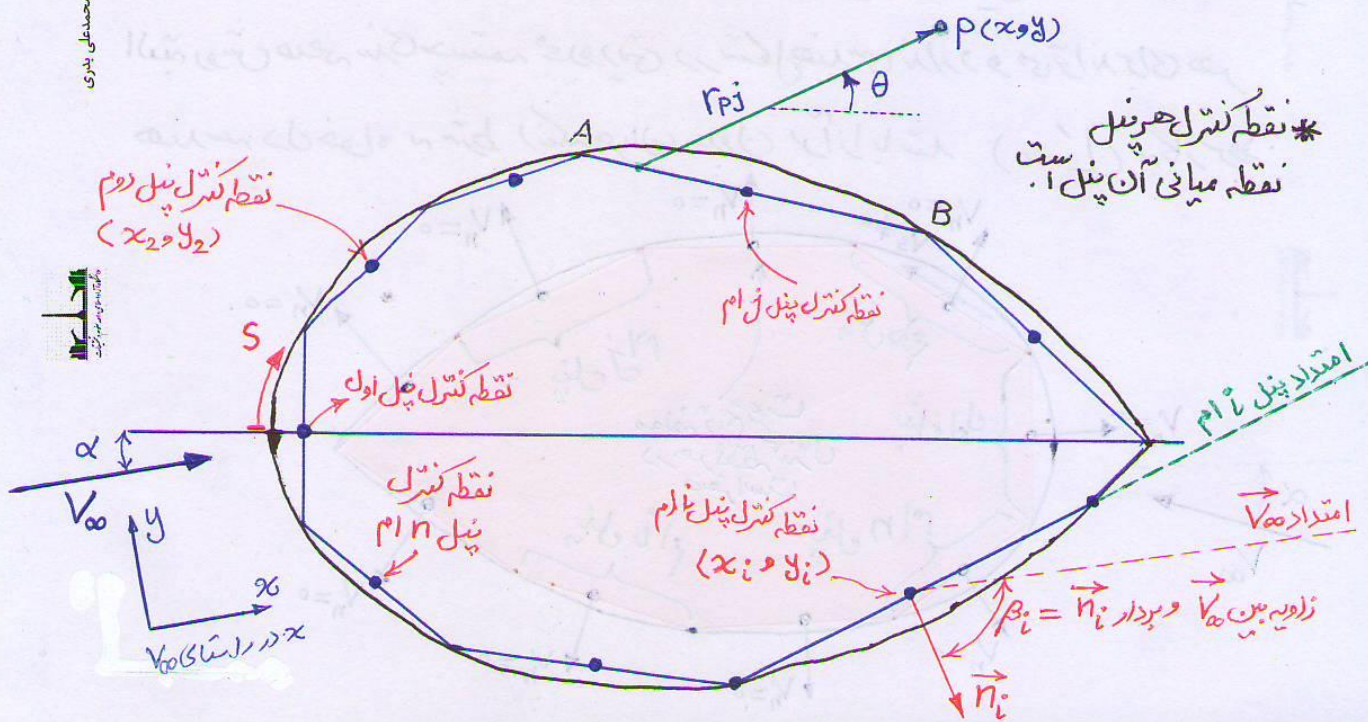 محمدعلی بدری
P(x,y)
θ
rpj
* نقطه کنترل هر پنل
نقطه میانی آن پنل است.
A
B
نقطه کنترل پنل دوم
(x₂,y₂)
نقطه کنترل پنل j ام
S
نقطه کنترل پنل اول
امتداد پنل i ام
α
V∞
نقطه کنترل
پنل n ام
نقطه کنترل پنل i ام
(xᵢ,yᵢ)
امتداد V∞
y
x
x در راستای V∞
βᵢ = زاویه بین V∞ و بردار nᵢ
nᵢ